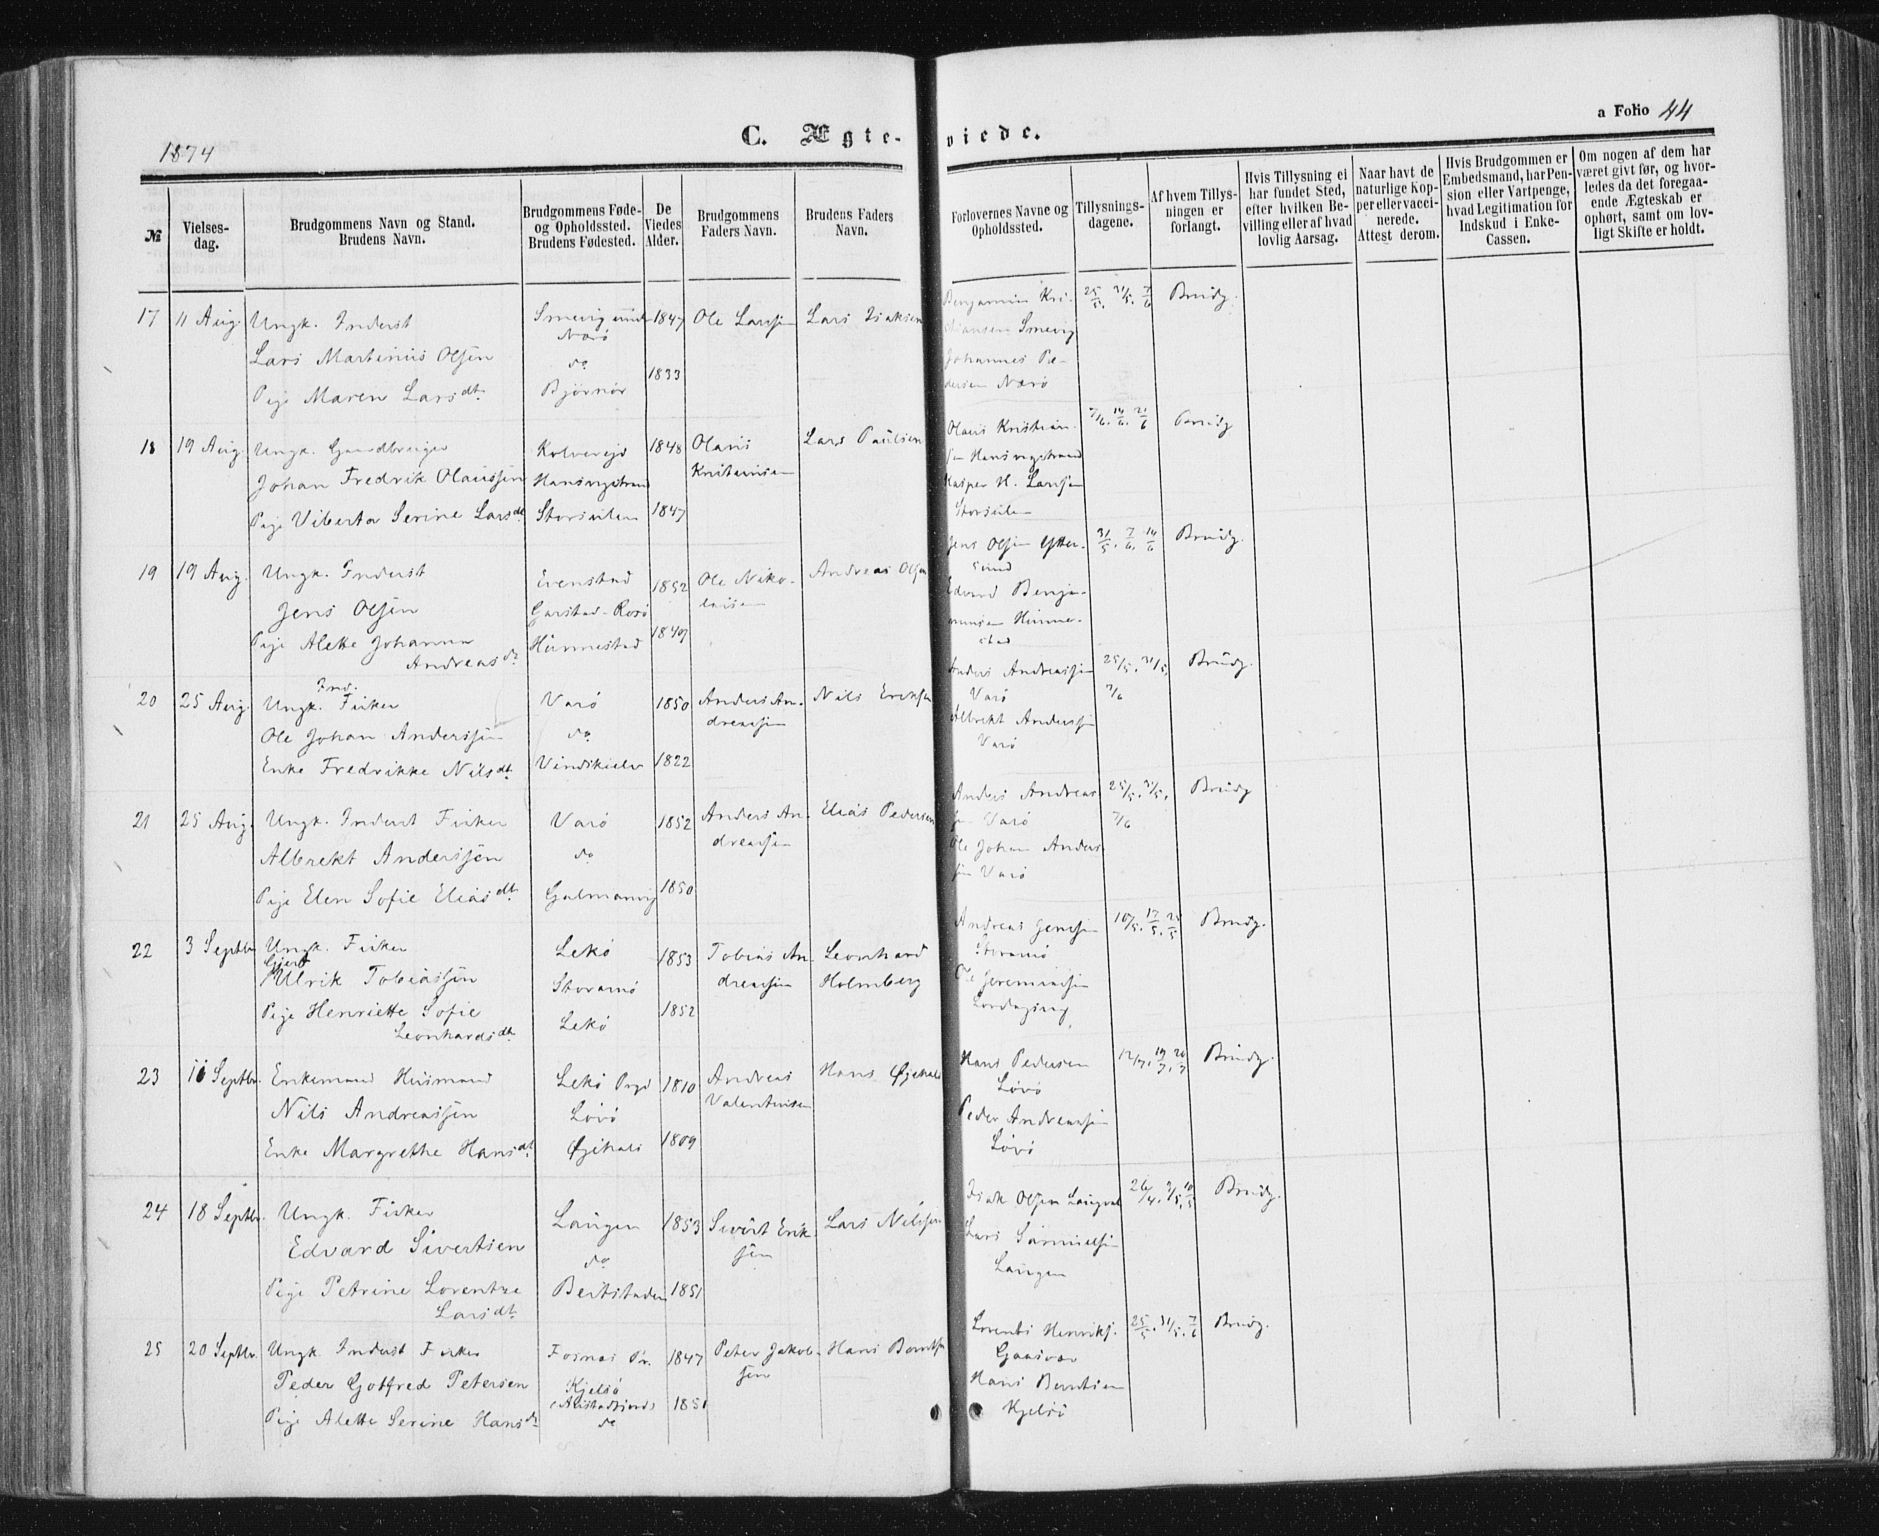 1874
C. Ægte-viede.
a Folio 44
№
Vielses-dag.
Brudgommens Navn og Stand.
Brudens Navn.
Brudgommens Føde-
og Opholdssted.
Brudens Fødested.
De
Viedes
Alder.
Brudgommens
Faders Navn.
Brudens Faders
Navn.
Forlovernes Navne og
Opholdssted.
Tillysnings-
dagene.
Af hvem Tillys-
ningen er
forlangt.
Hvis Tillysning ei
har fundet Sted,
efter hvilken Be-
villing eller af hvad
lovlig Aarsag.
Naar havt de
naturlige Kop-
per eller vacci-
nerede.
Attest derom.
Hvis Brudgommen er
Embedsmand, har Pen-
sion eller Vartpenge,
hvad Legitimation for
Indskud i Enke-
Cassen.
Om nogen af dem har
været givt før, og hvor-
ledes da det foregaa-
ende Ægteskab er
ophørt, samt om lov-
ligt Skifte er holdt.
17 11 Aug. Ungk. Inderst
Lars Martinus Olsen
Pige Maren Larsdt.
Smevig
Nærö
do
Björnör
1847
1833
Ole Larsen
Lars Isaksen
Benjamin Kri-
stiansen Smevig
Johannes Pe-
dersen Nærö
25/5. 31/5. 7/6
Brudg.
18 19 Aug. Ungk. Gaardbruger
Johan Fredrik Olaussen
Pige Viberta Serine Larsdt.
Kolvereid
Storsulen
1848
1847
Olaus
Kristiansen
Lars Paulsen
Olaus Kristian-
sen
Kasper H. Larsen
Storsulen
7/6. 14/6. 21/6
Brudg
19 19 Aug. Ungk. Inderst
Jens Olsen
Pige Alette Johanna
Andreasdt.
Evenstad
Garstad
Hunnestad
1852
1849
Ole Niko-
laisen
Andreas Olsen
Jens Olsen Ytter-
sund
Edvard Benja-
minsen Hunne-
stad
31/5. 7/6. 14/6
Brudg.
20 25 Aug. Ind.
Ungk. Fisker
Ole Johan Anderssen
Enke Fredrikke Nilsdt.
Varö
do
Vendskielv
1850
1822
Anders An-
dreassen
Nils Eriksen
Anders Andreassen
Varö
Albrekt Anderssen
Varö
25/5. 31/5.
7/6
Brudg.
21 25 Aug. Ungk. Inderst Fisker
Albrekt Anderssen
Pige Elen Sofie Eliasdt.
Varö
do
1852
1850
Anders An-
dreassen
Elias Pedersen
Anders Andreas-
sen Varö
Ole Johan Anders-
sen Varö
25/5. 31/5.
7/6
Brudg
22 3 Septbr. Ungk. Fisker
Gjert
Ulrik Tobiassen
Pige Henriette Sofie
Leonhardsdt.
Lekö
Storamö
Lekö
1853
1852
Tobias An-
dreassen
Leonhard
Holmberg
Andreas Jenssen
Storamö
Ole Jeremiassen
10/5. 17/5. 25/5
Brudg.
23 11 Septbr. Enkemand Husmand
Nils Andreassen
Enke Margrethe Hansdt.
Lekö Prgd
Lövö
1810
1809
Andreas
Valentinsen
Hans
Hans Pedersen
Lövö
Peder Andreassen
Lövö
12/7. 19/7. 26/7
Brudg.
24 18 Septbr. Ungk. Fisker
Edvard Sivertsen
Pige Petrine Lorentze
Larsdt.
Laugen
do
Bertstaden
1853
1851
Sivert Erik-
sen
Lars Nilssen
Isak Olsen
Lars Samuelsen
Laugen
26/4. 3/5. 10/5
Brudg.
25 20 Septbr. Ungk. Inderst Fisker
Peder Gotfred Petersen
Pige Alette Serine Hansdt.
Fosnes Pr.
Kjelsö
do
1847
1851
Peter Jakob-
sen
Hans Berntsen
Lorents Henriks.
Gaasvær
Hans Berntsen
Kjelsö
25/5. 31/5. 7/6
Brudg.